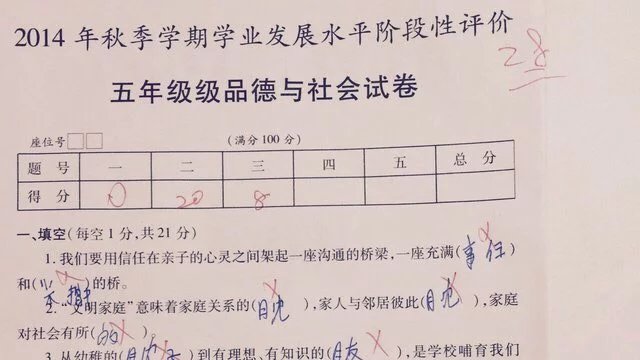 2014 年秋季学期学业发展水平阶段性评价
28
五年级级品德与社会试卷
座位号□□ (满分100分)
题号 一 二 三 四 五 总分
得分 0 20 8
一、填空(每空1分,共21分)
1.我们要用信任在亲子的心灵之间架起一座沟通的桥梁,一座充满(
和( )的桥。
2.“文明家庭”意味着家庭关系的( ),家人与邻居彼此( ),家庭
对社会有所( )。
3.从幼稚的( )到有理想、有知识的( ),是学校哺育我们